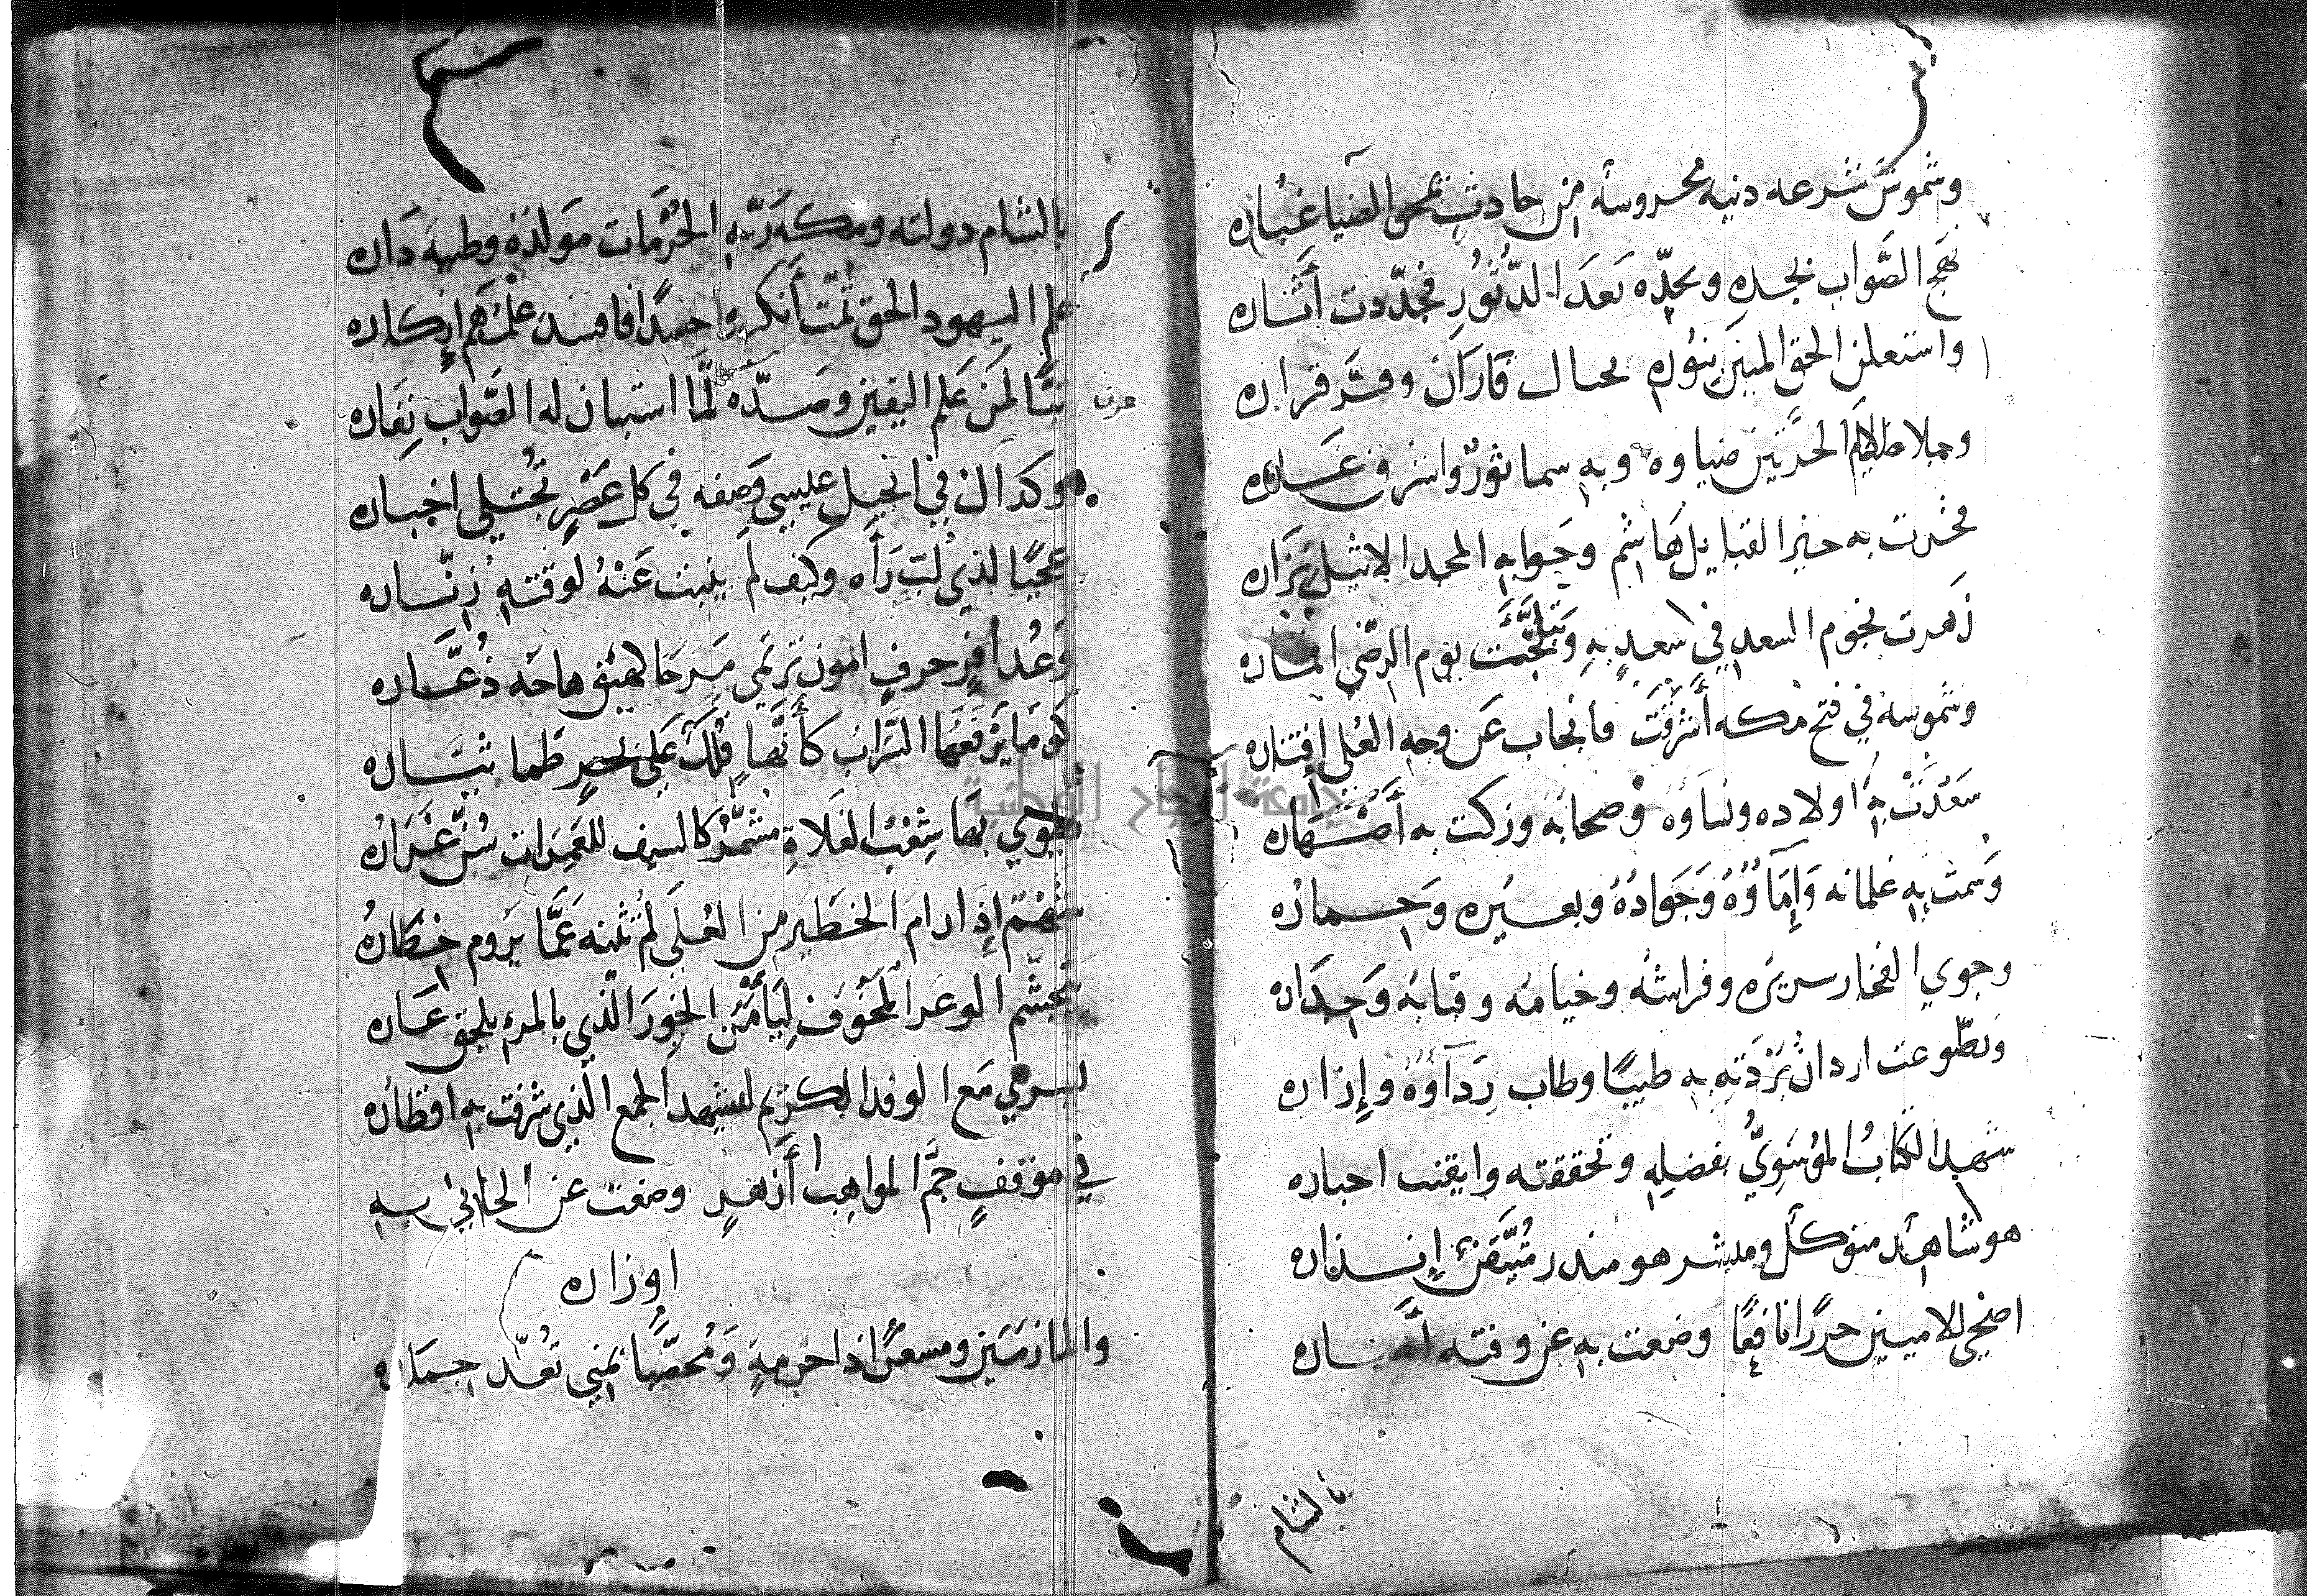 وشموس شرعه دنيه محروسة من حادث تمحي الضيا غباره
نهج الصواب بجده وبجدّه بعد الدّثور فجدّدت أثاره
واستعلن الحق المبين بنوره بجبال فاران وقر قراره
وجلا ظلام الحندس ضياوه وبه سما ثور واشرق غاره
فخرت به خير القبايل هاشم وحوا به المجد الاثيل نزاره
زهرت نجوم السعد في سعد به يوم الرضى اقماره
وشموسه في فتح مكه أشرقت فانجاب عن وجه العلى اقتاره
سعدت به اولاده ونساوه وصحابه وزكت به أصهاره
وسمت به غلمانه وإماؤه وجواده وبعيره وحماره
وحوي الفخار سريره وفراشه وخيامه وقبابه وجداره
وتضوعت اردان بردته به طيبًا وطاب رداؤه وإزاره
شهد الكتاب الموسويّ بفضله وتحققته وايقنت احباره
هو شاهد متوكل ومبشر هو منذر متيقن إنذاره
اضحى للاميين حرزًا نافعًا وضعت به عن وفته آصاره
بالشام
بالشام دولته ومكة ربّه الحرمات مولده وطيبه داره
علم اليهود الحق ثمّت أنكروا حسدًا فافسد علمهم إنكاره
تبًا لمن علم اليقين وصدّه لمّا استبان له الصواب نفاره
وكذاك في انجيل عيسى وصفه في كل عصر تجتلي اخباره
عجبًا لذي لب رآه وكيف لم ينبت عنه لوقته زنّاره
وعذافر حرف امون ترتمي مرحا
كوما يرفعها السّراب كأنّها فلك على بحر طما تيّاره
يهوي بها شعب الفلاة مشمّر كالسيف للغمرات سنّ غراره
شهم إذا رام الخطير من العلى لم تثنه عمّا يروم خطاره
تجشّم الوعر المخوف ليأمن الخور الّذي بالمرء يلحق عاره
ليسري مع الوفد الكريم ليشهد الجمع الّذي شرفت به اقطاره
في موقف جمّ المواهب أزهر وضعت عن الجاني به
اوزاره
والمازمين ومسعرًا ذا حرمة ومحصّبًا بمنى تعدّ جماره